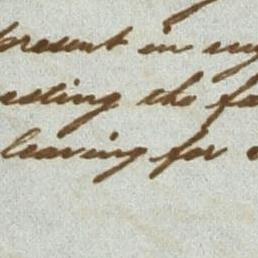 present in my
esting the fa
leaving for